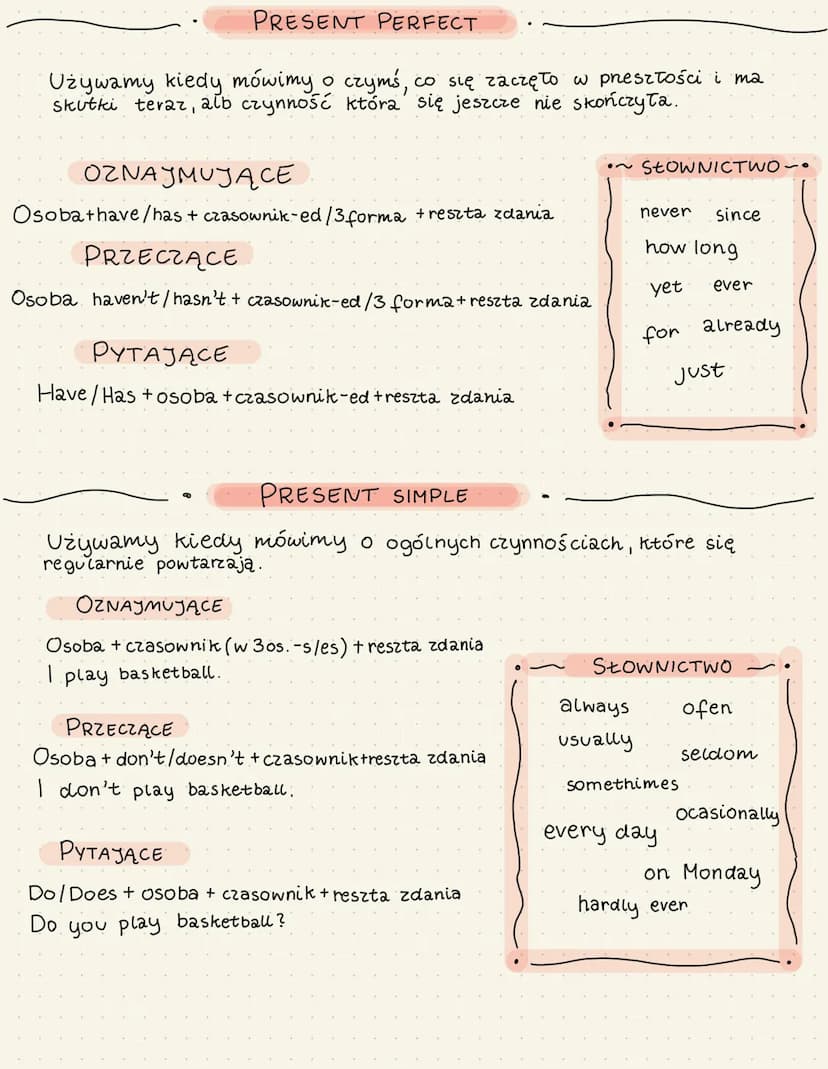 PRESENT PERFECT
Używamy kiedy mówimy o czymś, co się zaczęło w preszłości i ma
skutki teraz, alb czynność która się jeszcze nie skończyła.
OZNAJMUJĄCE
Osoba+have/has + czasownik-ed/3 forma + reszta zdania
PRZECZĄCE
Osoba haven't/hasn't + czasownik-ed/3 forma + reszta zdania
PYTAJĄCE
Have/Has + osoba + czasownik-ed + reszta zdania
SŁOWNICTWO
never since
how long
yet ever
for already
just
PRESENT SIMPLE
Używamy kiedy mówimy o ogólnych czynnościach, które się
regularnie powtarzają.
OZNAJMUJĄCE
Osoba + czasownik (w 3os. -s/es) + reszta zdania
I play basketball.
PRZECZĄCE
Osoba + don't/doesn't + czasownik+reszta zdania
I don't play basketball.
PYTAJĄCE
Do/Does + osoba + czasownik + reszta zdania
Do you play basketball?
SŁOWNICTWO
always ofen
usually
seldom
somethimes
ocasionally
every day
on Monday
hardly ever